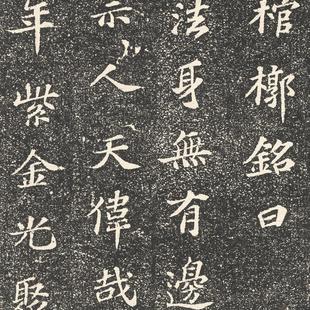 棺槨銘曰
法身無有邊
示人天偉哉
年紫金光聚